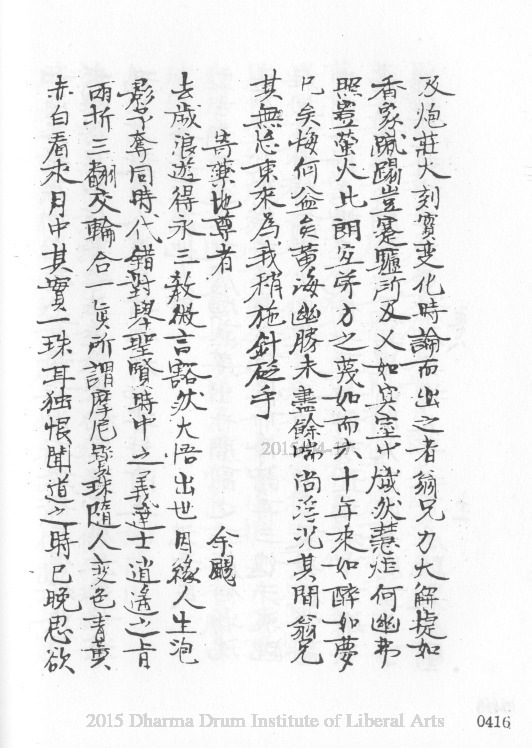 及炮莊大刻實变化時論而出之者翁兄力大解提如
香象蹴蹋豈蹇驢所及又如冥室中熾然慧炬何幽弗
照豈螢火比朗方之蔑如而六十年來如醉如夢
已矣悔何益矣黃海幽勝未盡餘端尚淫况其間翁兄
其無忘東來為我稍施針砭乎
寄藥地尊者 余颺
去歲浪遊得永三教微言豁然大悟出世因緣人生泡
影予奪同時代錯對舉聖賢時中之義達士逍遙之旨
兩折三翻交輪合一眞所謂摩尼寶珠隨人变色青黃
赤白看水月中其實一珠耳独恨聞道之時已晚思欲
2015 Dharma Drum Institute of Liberal Arts
0416